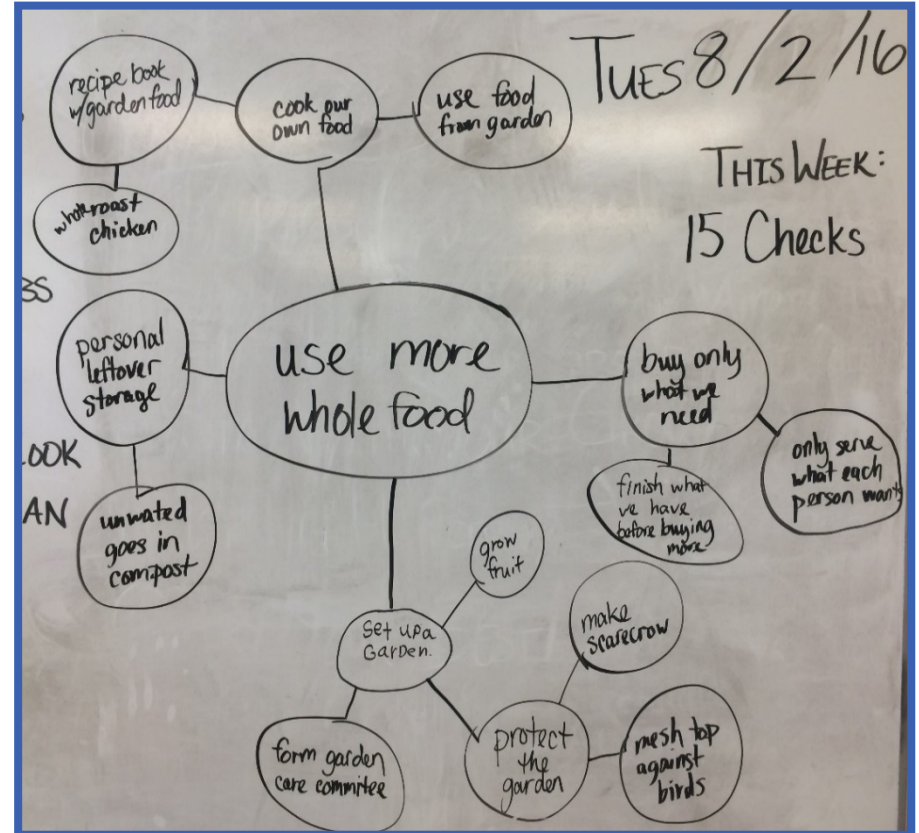 TUES 8/2/16
THIS WEEK:
15 Checks
recipe book
w/garden food
cook our
own food
use food
from garden
whole roast
chicken
BS
personal
leftover
storage
use more
whole food
buy only
what we
need
OOK
AN
only serve
what each
person wants
unwated
goes in
compost
finish what
we have
before buying
more
grow
fruit
Set up a
GarDen.
make
scarecrow
form garden
care commitee
protect
the
garden
mesh top
against
birds